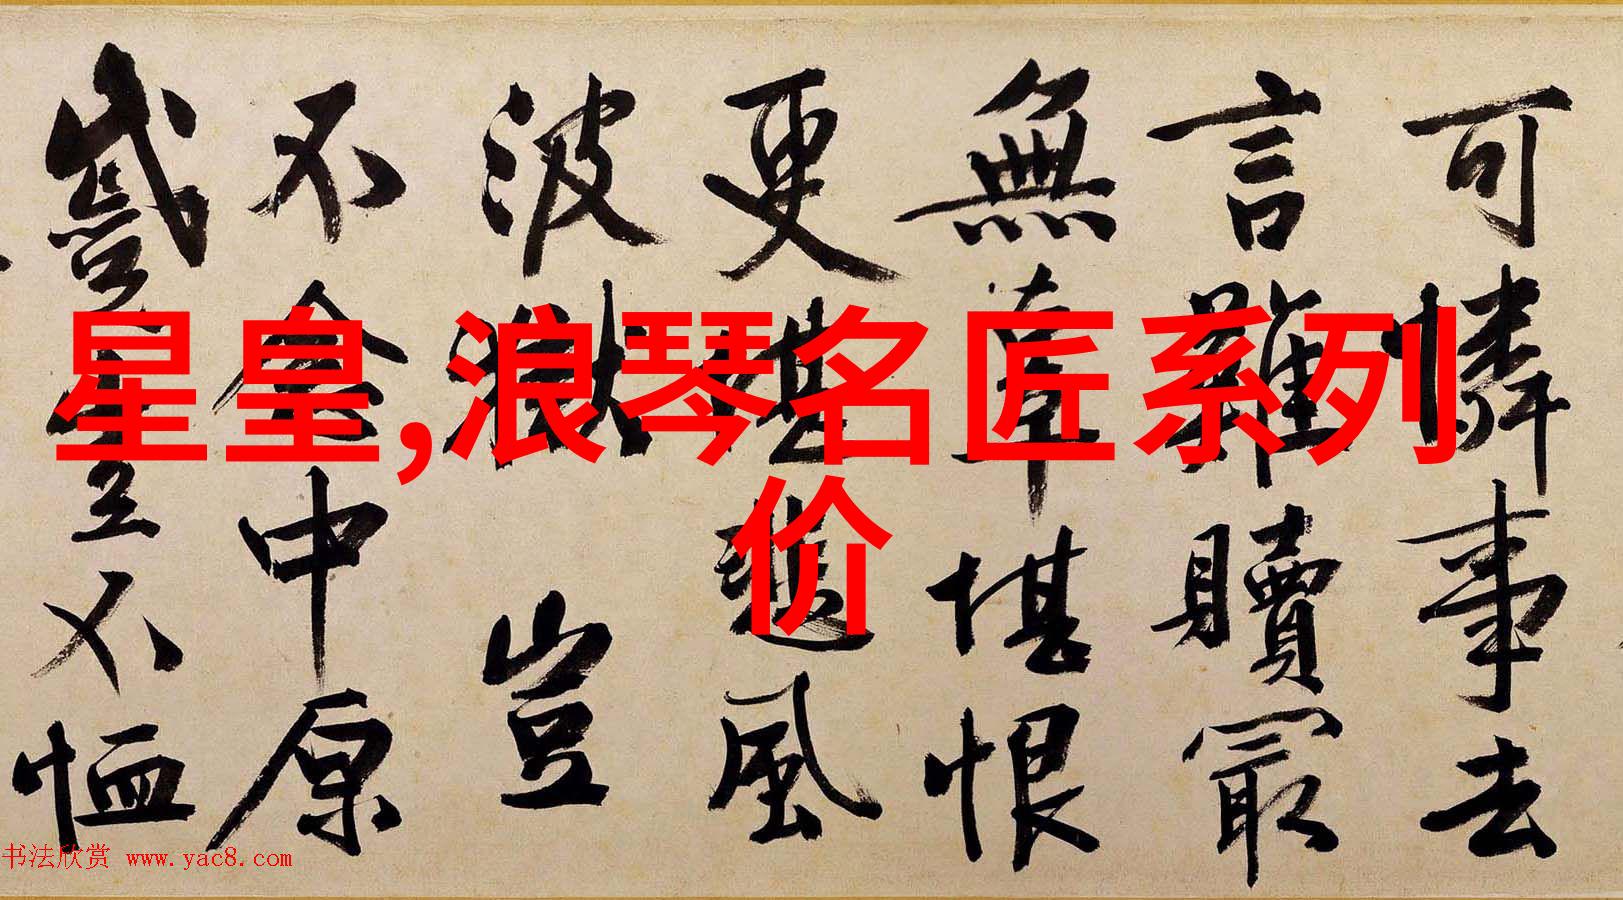 星皇,浪琴名匠系列
价
可憐事去
言難贖冣
無辜堪恨
更堪悲風
波獄 豈
不念中原
豈不恤
书法欣赏 www.yac8.com